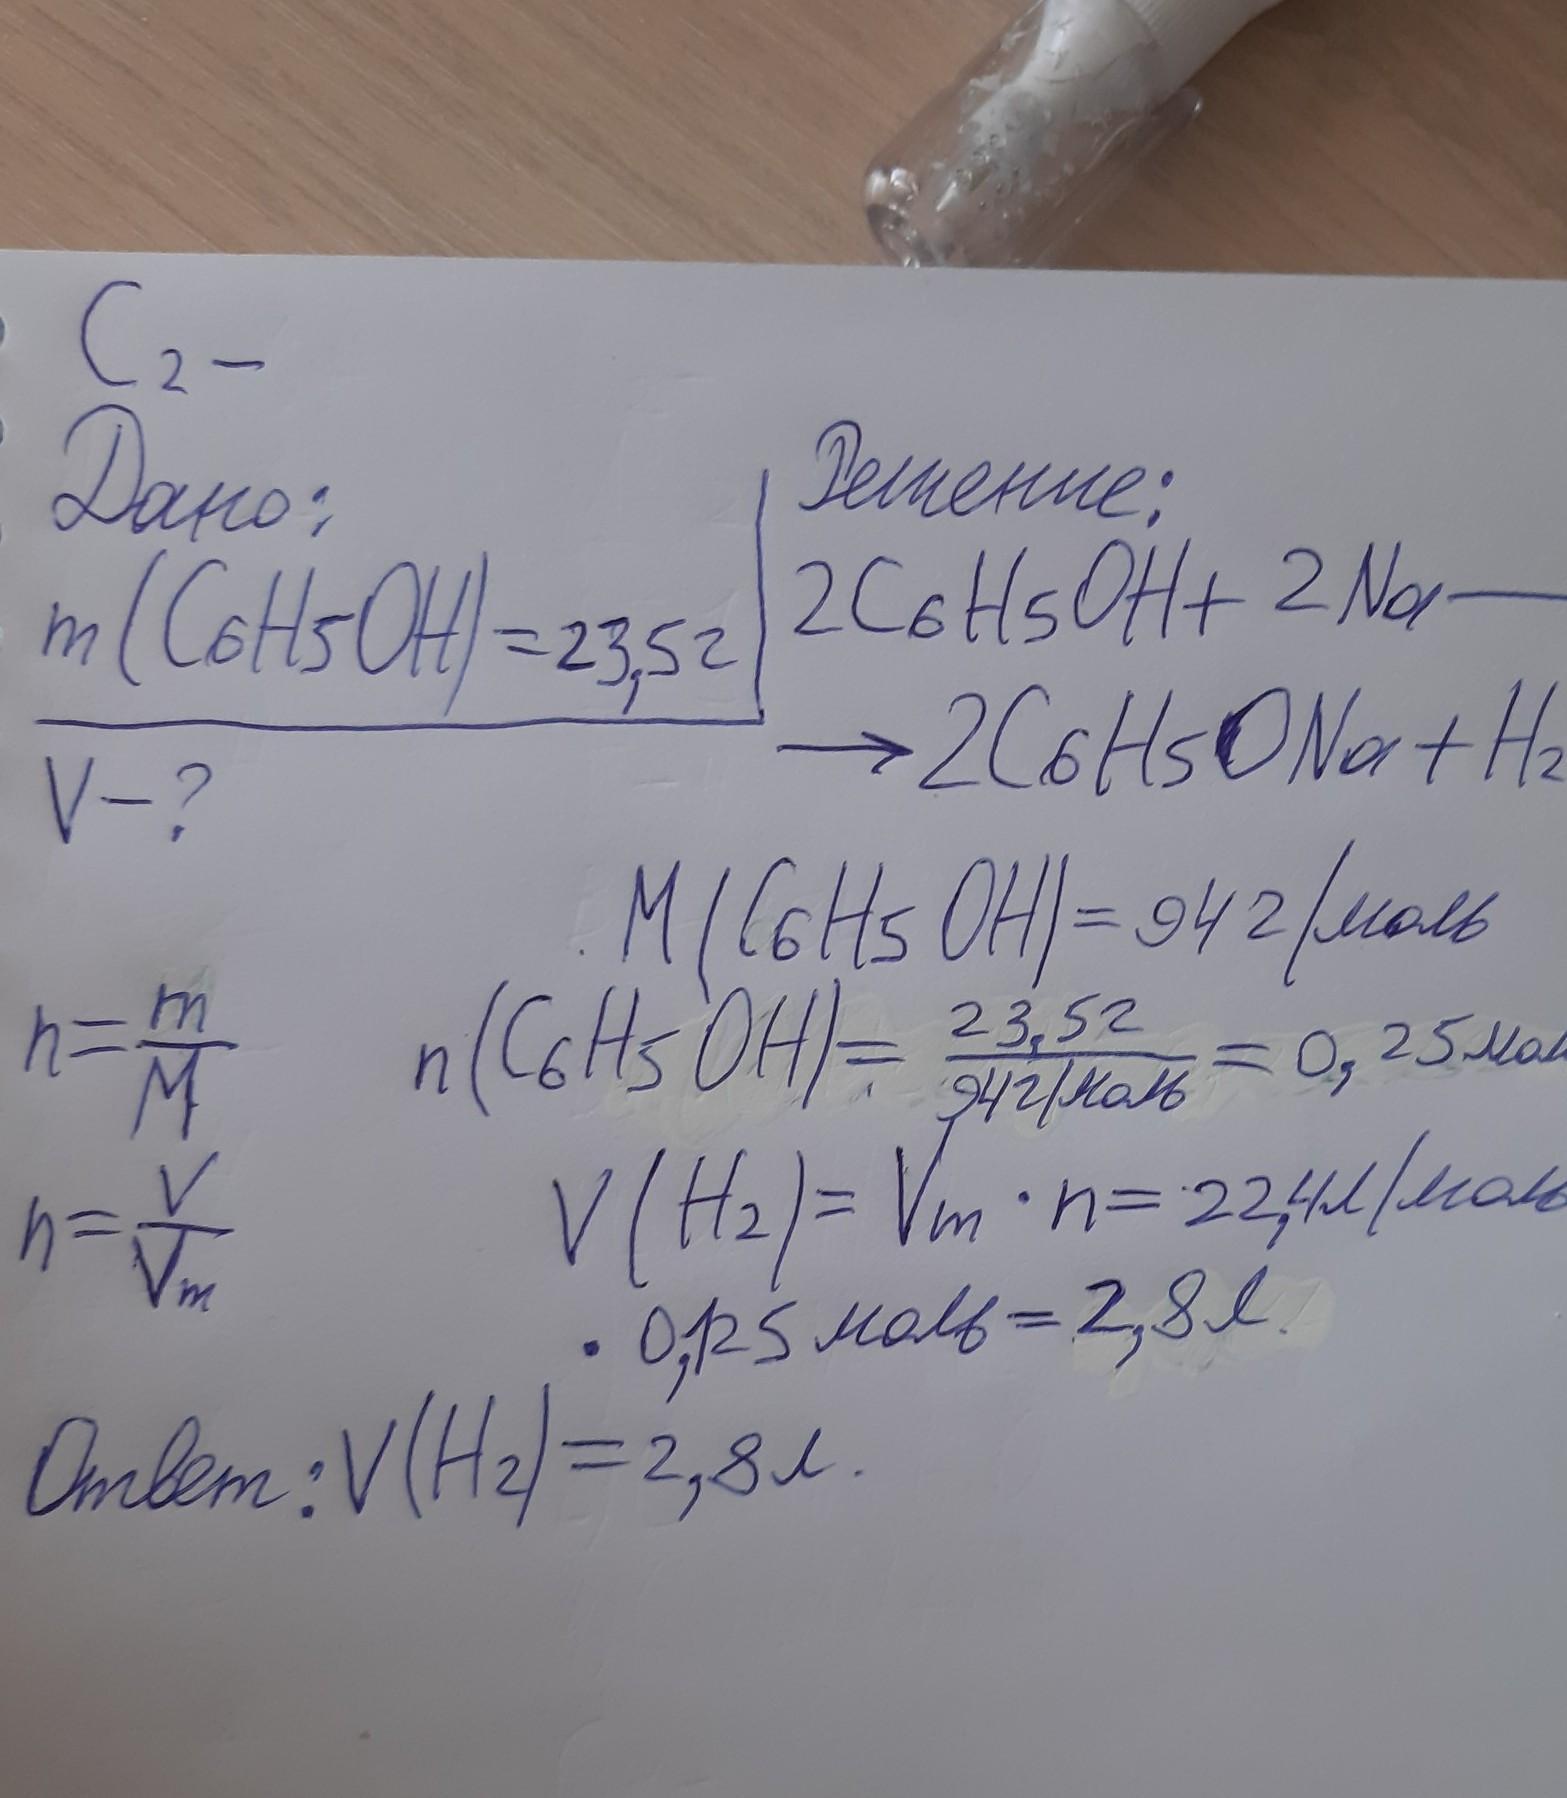 C2 –
Дано:
m(C6H5OH)=23,5г
V – ?
n = m/M
n = V/Vm
Решение:
2C6H5OH + 2Na —
→ 2C6H5ONa + H2
M(C6H5OH) = 94г/моль
n(C6H5OH) = 23,5г/94г/моль = 0,25мол
V(H2) = Vm · n = 22,4л/моль
· 0,125 моль = 2,8 л.
Ответ: V(H2) = 2,8 л.